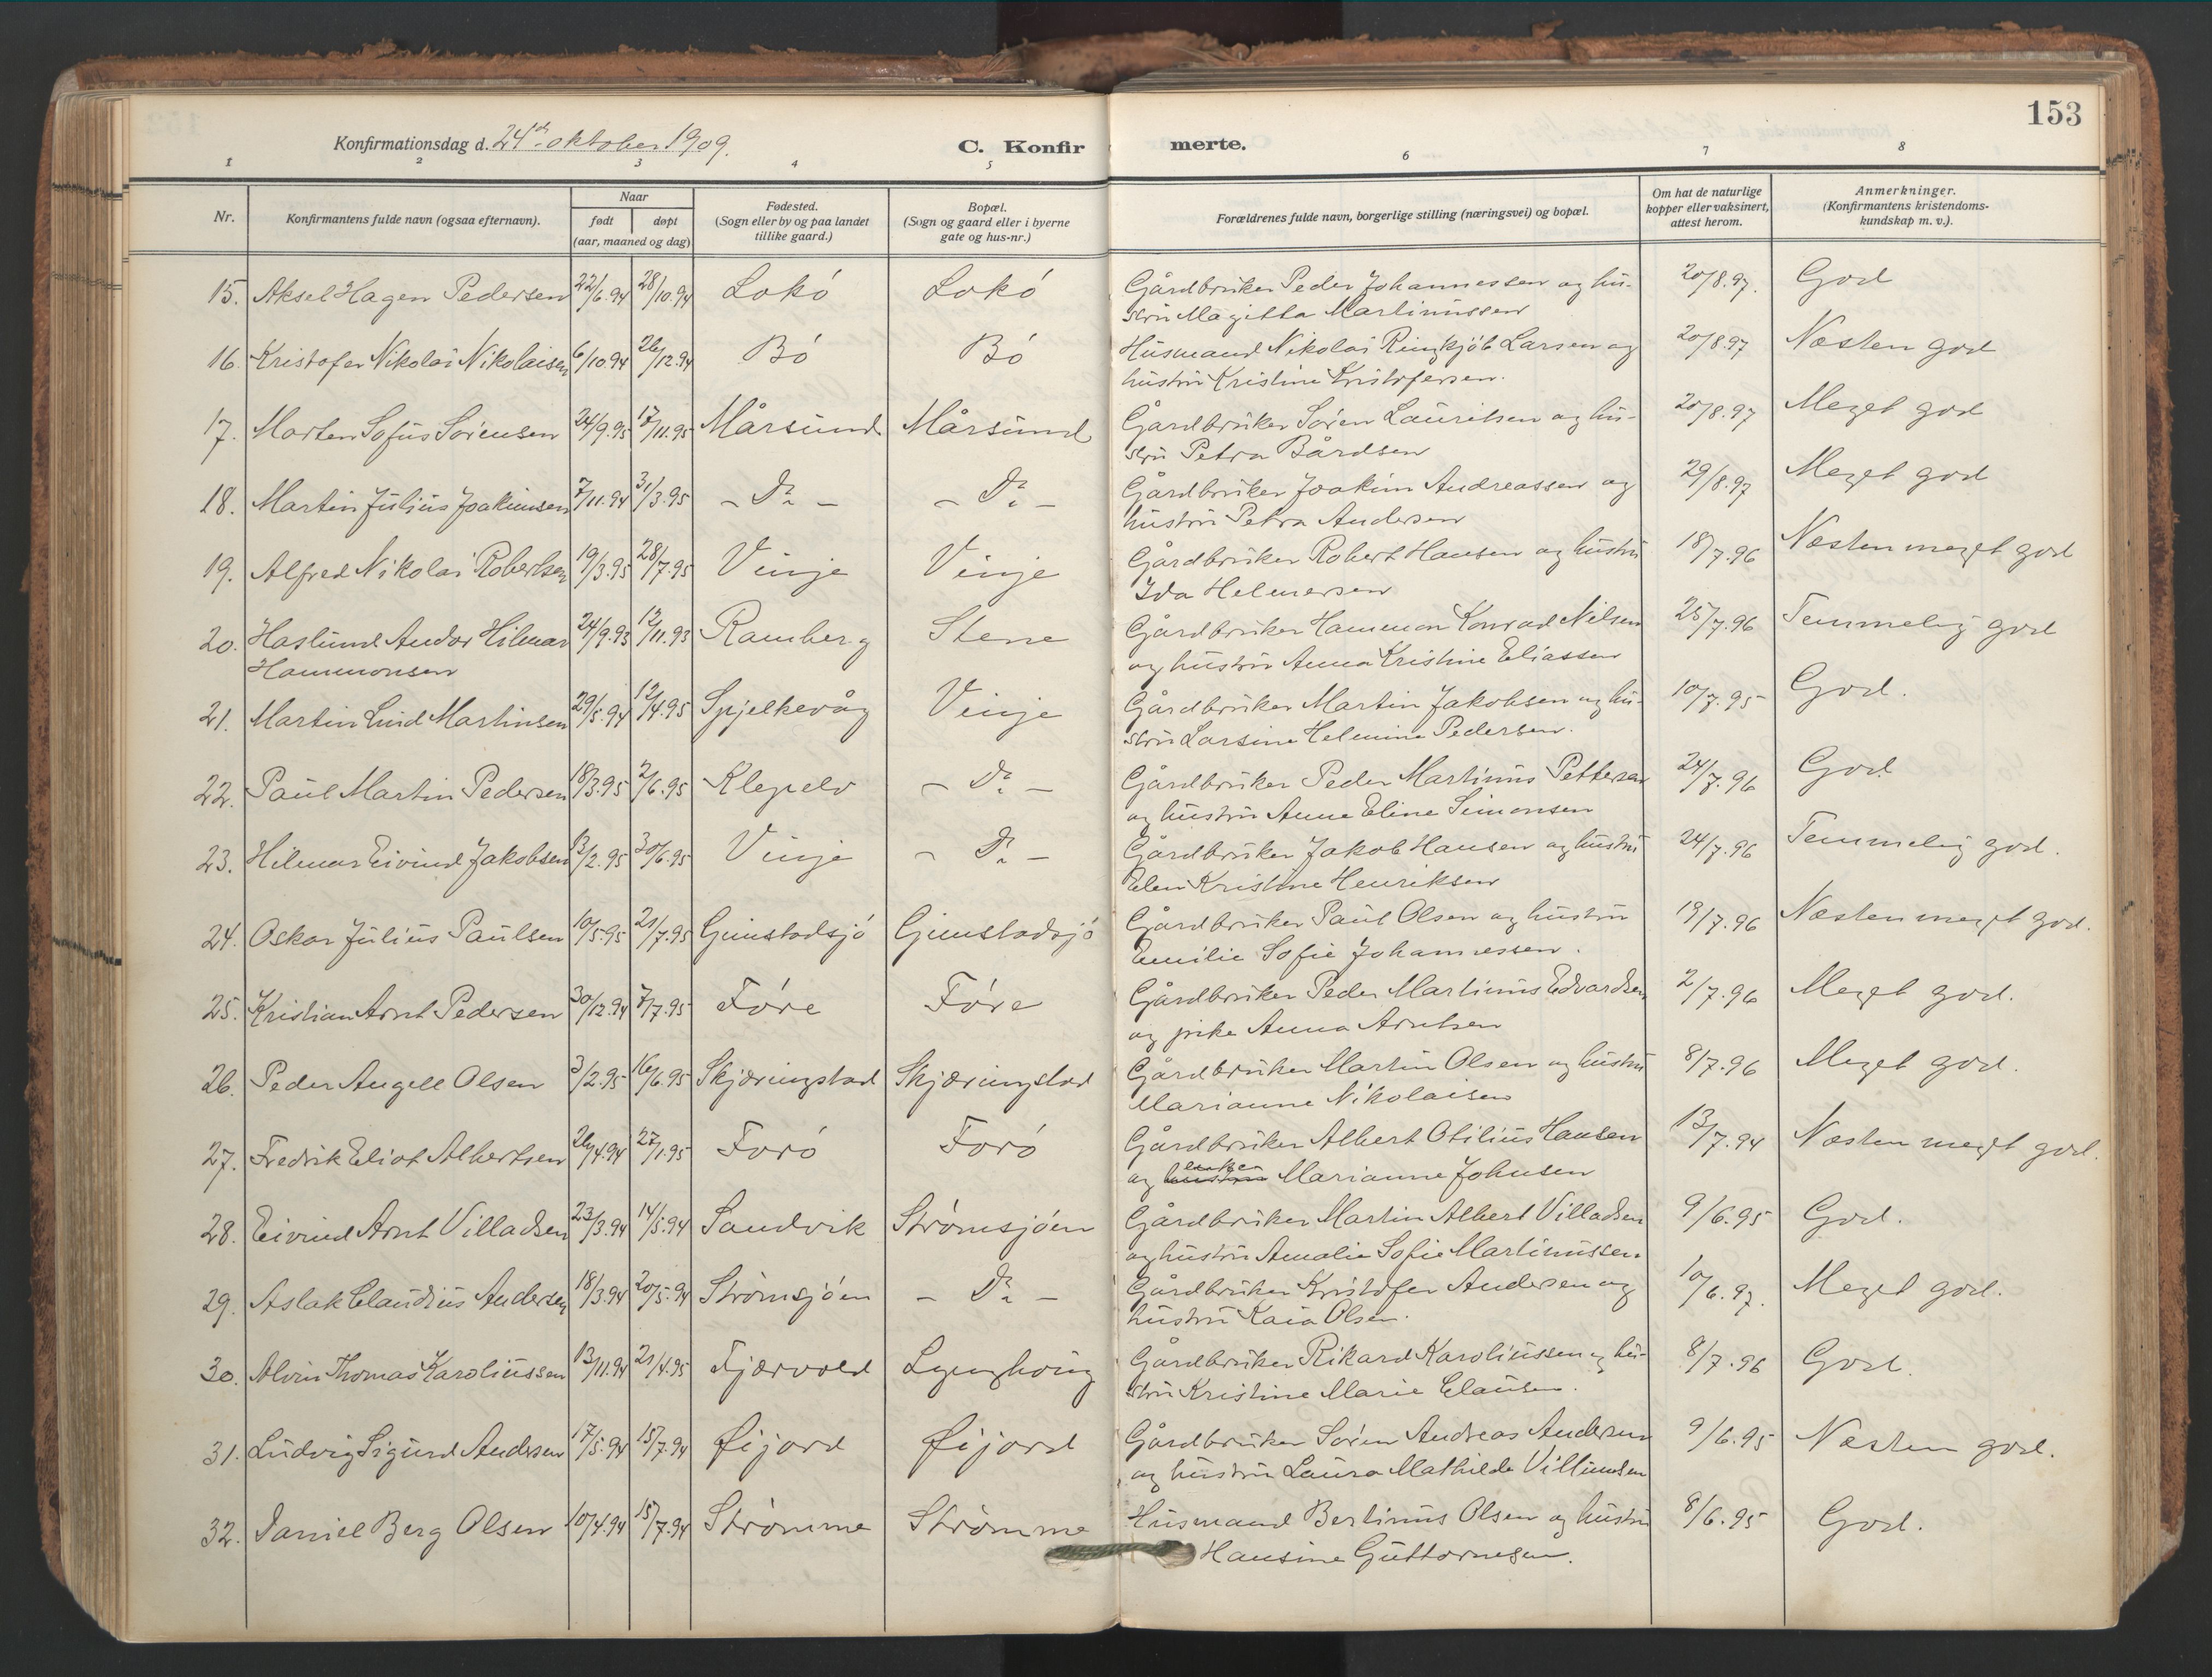 153
Konfirmationsdag d. 24de oktober 1909.
C. Konfirmerte.
1 2 3 4 5 6 7 8
Nr. | Konfirmantens fulde navn (ogsaa efternavn). | Naar født døpt (aar, maaned og dag) | Fødested. (Sogn eller by og paa landet tillike gaard.) | Bopæl. (Sogn og gaard eller i byerne gate og hus-nr.) | Forældrenes fulde navn, borgerlige stilling (næringsvei) og bopæl. | Om hat de naturlige kopper eller vaksinert, attest herom. | Anmerkninger. (Konfirmantens kristendoms-kundskap m. v.).
15. Aksel Hagen Pedersen 22/6.94 28/10.94 Lokó Lokó Gårdbruker Peder Johannessen og hu- 20/8.97. God
stru Magitta Martinussen
16. Kristofer Nikolai Nikolaisen 6/10.94 26/12.94 Bó Bó Husmand Nikolai Ringkjøb Larsen og 20/8.97 Næsten god
hustru Kristine Kristofersen.
17. Morten Sofus Sórensen 24/9.95 17/11.95 Mårsund Mårsund Gårdbruker Sóren Lauritsen og hu- 20/8.97 Meget god
stru Petra Bårdsen
18. Martin Julius Joakimsen 7/11.94 31/3.95 - Do - - Do - Gårdbruker Joakim Andreassen og 29/8.97 Meget god
hustru Petra Andersen
19. Alfred Nikolai Robertsen 19/3.95 28/7.95 Vinje Vinje Gårdbruker Robert Hansen og hustru 18/7.96 Næsten meget god
Ida Helmersen
20. Haslund Andor Hilmar 24/9.93 12/11.93 Ramberg Stene Gårdbruker Hammon Konrad Nilsen 25/7.96 Temmelig god
Hammonsen og hustru Anna Kristine Eliassen
21. Martin Lind Martinsen 29/5.94 12/4.95 Spjelkevåg Vinje Gårdbruker Martin Jakobsen og hu- 10/7.95 God.
stru Larsine Helmine Pedersen.
22. Paul Martin Pedersen 18/3.95 2/6.95 Klepelv - Do - Gårdbruker Peder Martinus Pettersen 24/7.96 God
og hustru Anne Eline Simonsen
23. Hilmar Eivind Jakobsen 13/2.95 30/6.95 Vinje - Do - Gårdbruker Jakob Hansen og hustru 24/7.96 Temmelig god.
Elen Kristine Henriksen
24. Oskar Julius Paulsen 10/5.95 21/7.95 Gimstadsjó Gimstadsjó Gårdbruker Paul Olsen og hustru 19/7.96 Næsten meget god.
Emilie Sofie Johannessen.
25. Kristian Arnt Pedersen 30/12.94 7/7.95 Fóre Fóre Gårdbruker Peder Martinus Edvardsen 2/7.96 Meget god.
og pike Anna Arntsen
26. Peder Angell Olsen 3/2.95 16/6.95 Skjæringstad Skjæringstad Gårdbruker Martin Olsen og hustru 8/7.96 Meget god.
Marianne Nikolaisen
27. Fredrik Eliot Albertsen 26/4.94 27/1.95 Foró Foró Gårdbruker Albert Otilius Hansen 13/7.94 Næsten meget god.
og hustru enken Marianne Johnsen
28. Eivind Arnt Villadsen 23/3.94 14/5.94 Sandvik Strómsjóen Gårdbruker Martin Albert Villadsen 9/6.95 God.
og hustru Amalie Sofie Martinussen
29. Aslak Claudius Andersen 18/3.94 20/5.94 Strómsjóen - Do - Gårdbruker Kristofer Andersen og 10/6.97. Meget god.
hustru Kaia Olsen.
30. Alvin Thomas Karoliussen 13/11.94 21/4.95 Fjærvold Lynghoug Gårdbruker Rikard Karoliussen og hu- 8/7.96 God.
stru Kristine Marie Clausen.
31. Ludvig Sigurd Andersen 17/5.94 15/7.94 Øijord Øijord Gårdbruker Sóren Andreas Andersen 9/6.95 Næsten god.
og hustru Laura Mathilde Villumsen
32. Daniel Berg Olsen 10/4.94 15/7.94 Strómme Strómme Husmand Bertinus Olsen og hustru 8/6.95 God.
Hansine Guttormsen.